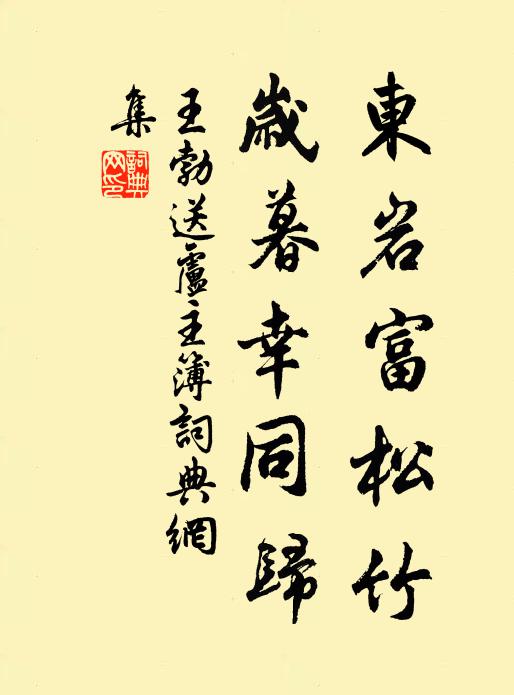 東岩富松竹
歲暮幸同歸
王勃送盧主簿詞典網
集
詞典
网印